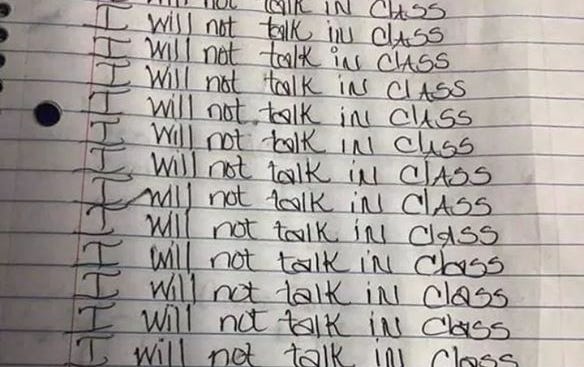 will not talk in CLASS
I will not talk in CLASS
I will not talk in CLASS
I will not talk in CLASS
I will not talk in CLASS
I will not talk in CLASS
I will not talk in CLASS
I will not talk in CLASS
I will not talk in ClASS
I will not talk in Class
I will not talk in Class
I will not talk in Class
I will not talk in Class